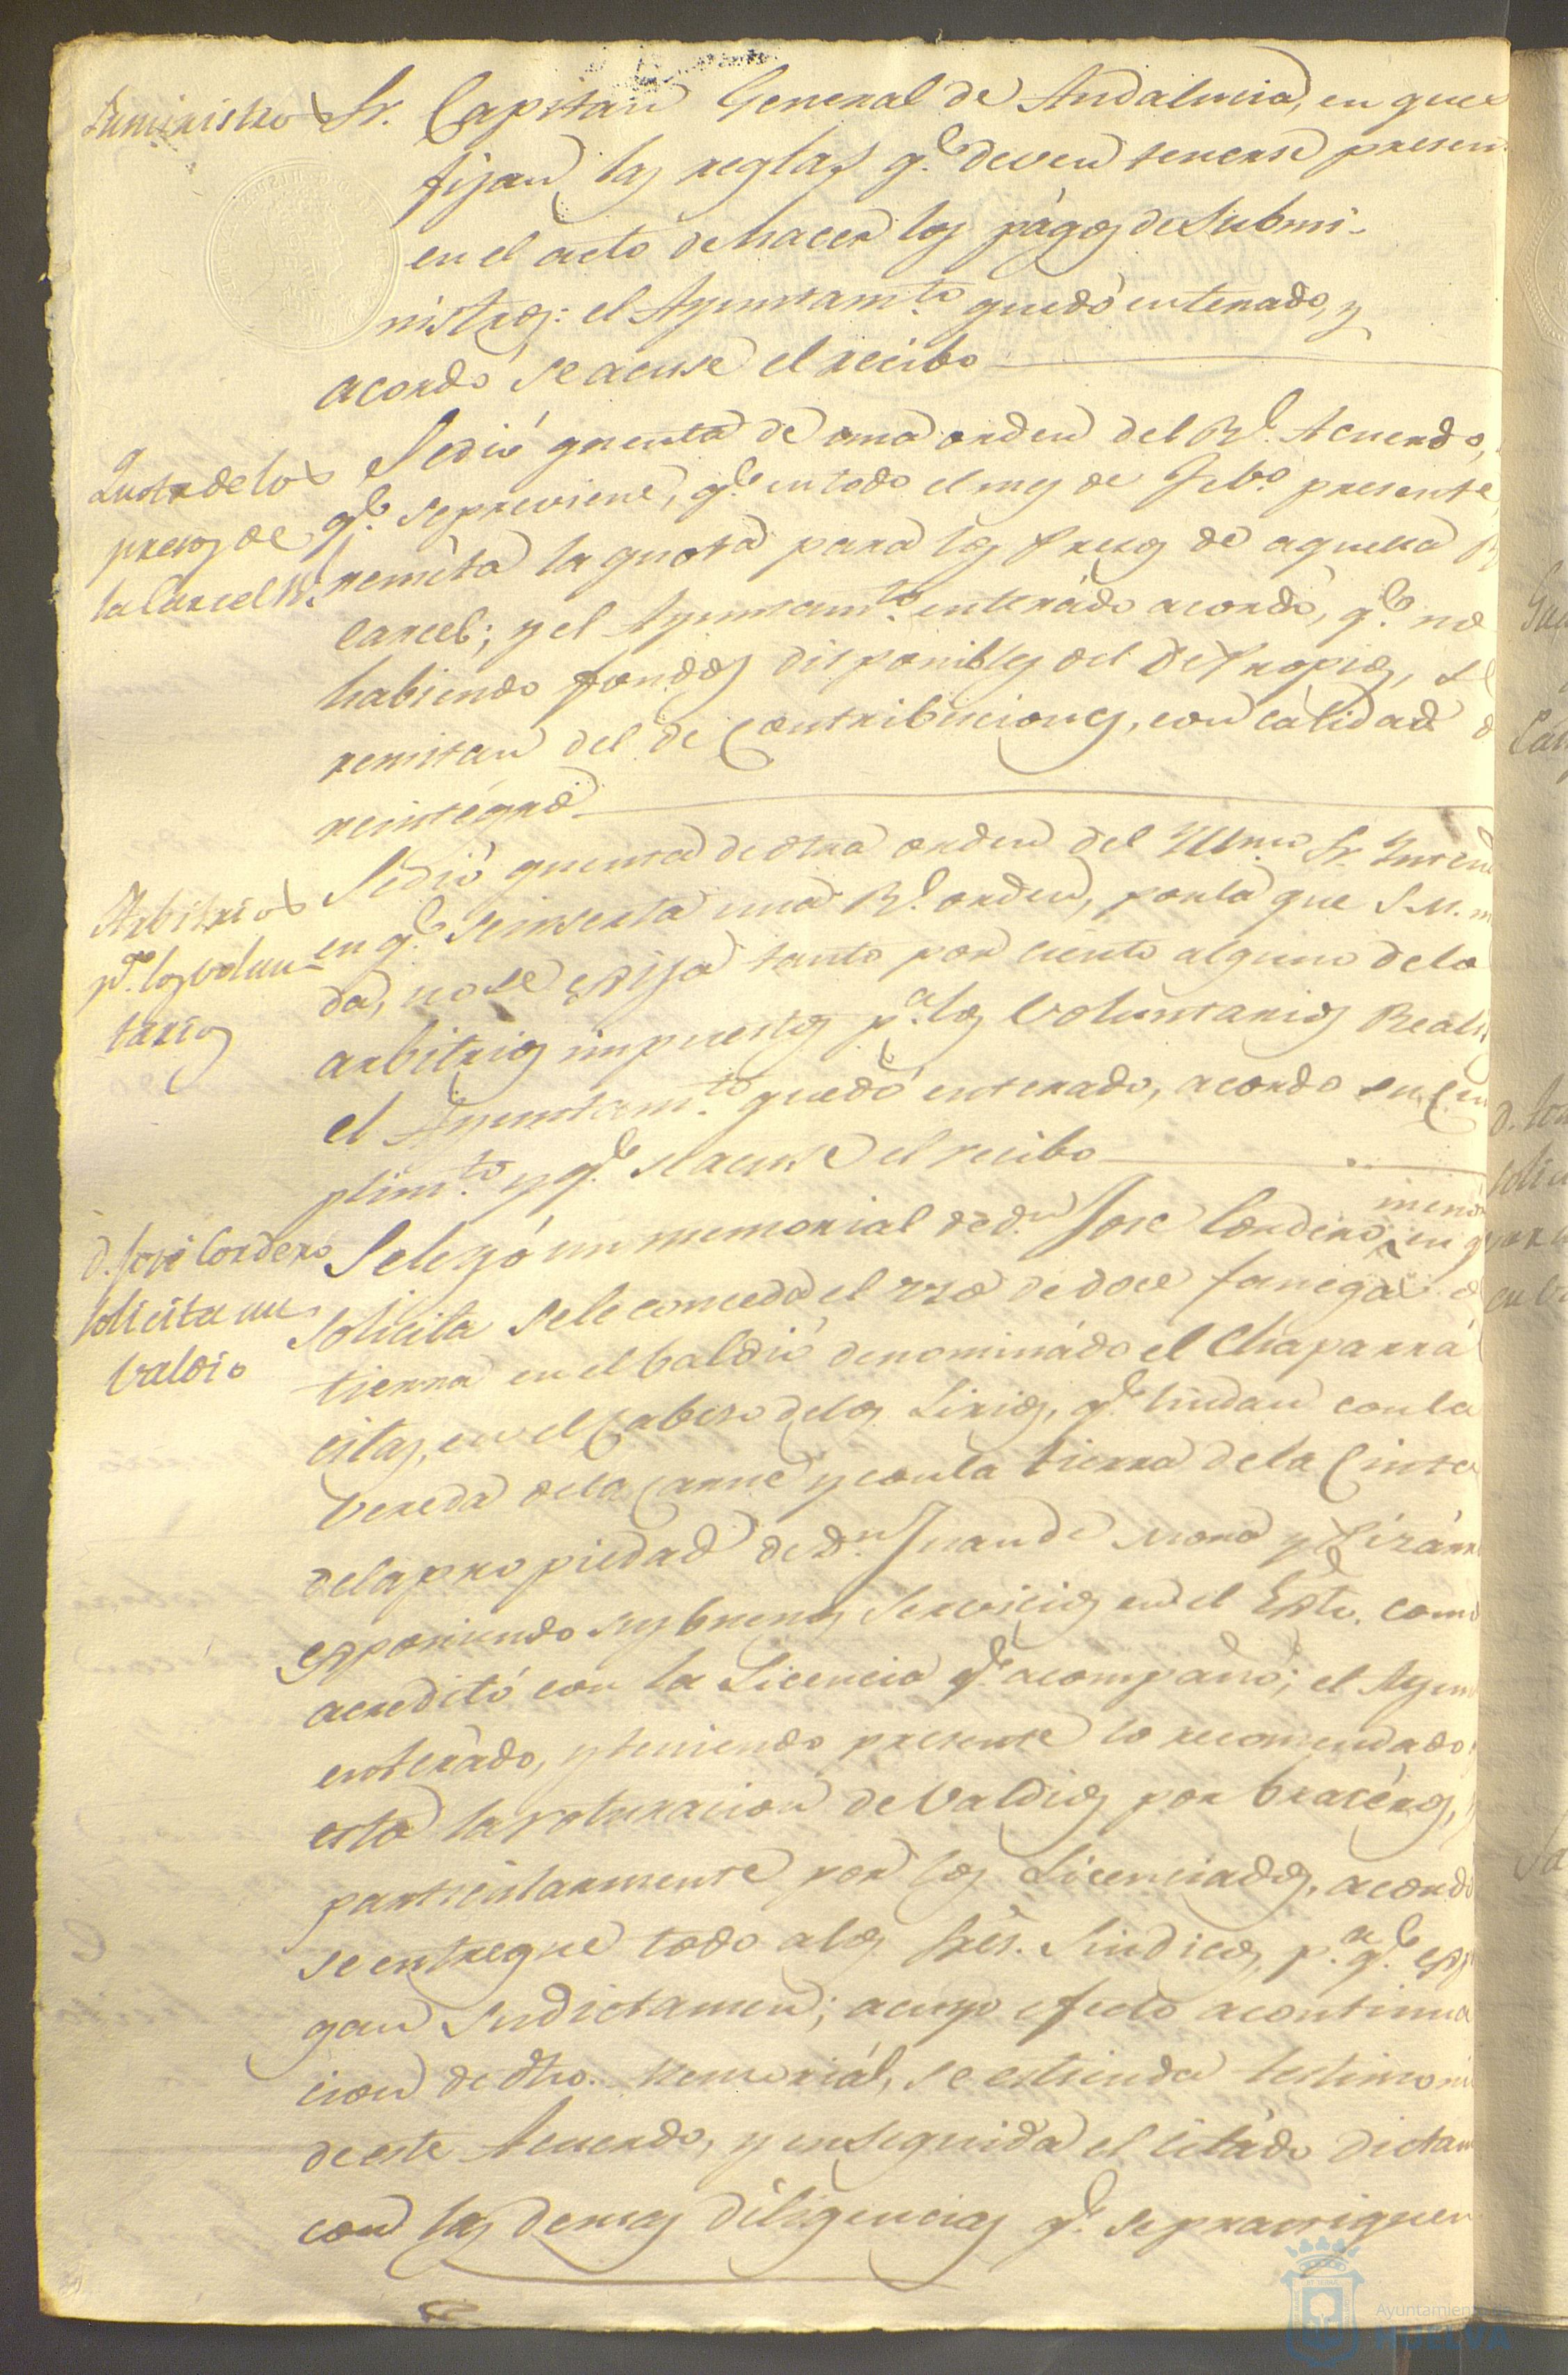 Suministros
Sr. Capitan General de Andalucia, en que
fijan las reglas q.e deven tenerse presen
en el acto de hacer los págos de Submi-
nistros: el Ayuntam.to quedó enterado, y
acordó se acuse el recibo
Quota de los
presos de
la Carcel R.l
Se dió quenta de una orden del R.l Acuerdo,
q.e se previene, q.e en todo el mes de Feb.o presente,
remita la quota para los presos de aquella R
Carcel; y el Ayuntam.to enterádo acordó, q.e no
habiendo fondos disponibles del de Propios, se
remitan del de Contribuciones, con cálidad d
reintégro
Arbitrios
p.a los volun-
tarios
Se dió quenta de otra orden del Yllmo Sr. Inten
en q.e se inserta una R.l orden, por la que S.M. m
da, no se exija tanto por ciento alguno de lo
arbitrios impuestos p.a los Voluntarios Realis
el Ayuntam.to quedó enterado, acordó su Cum
plim.to y q.e se acuse el recibo
D. José Cordero
solicita un
valdio
menór
Se leyó un memorial de d.n Jose Cordero, en q
solicita se le conceda el uso de doce fanegas d
tierra en el baldío denominádo el Chaparrá
citas, en el Cabeso de los Lirios, q.e lindan con la
Vereda de la Carne y con la tierra de la Cinta
de la propiedad de D.n Juan de Mora y Pizárr
exponiendo sus buenos servicios en el Exto. como
acreditó con la Licencia q.e acompañó; el Ayun
enterádo, y teniendo presente lo recomendado
está la roturacion de Valdios por bracéros, y
particularmente por los Licenciados, acordó
se entregue todo a los Sres. Sindicos, p.a q.e exp
gan su dictamen; a cuyo efecto a continua
cion de dho. Memoriál, se estienda testimoni
de este Acuerdo, y en seguida el citádo dictam
con las demas diligencias q.e se practiquen
Ayuntamiento de
HUELVA